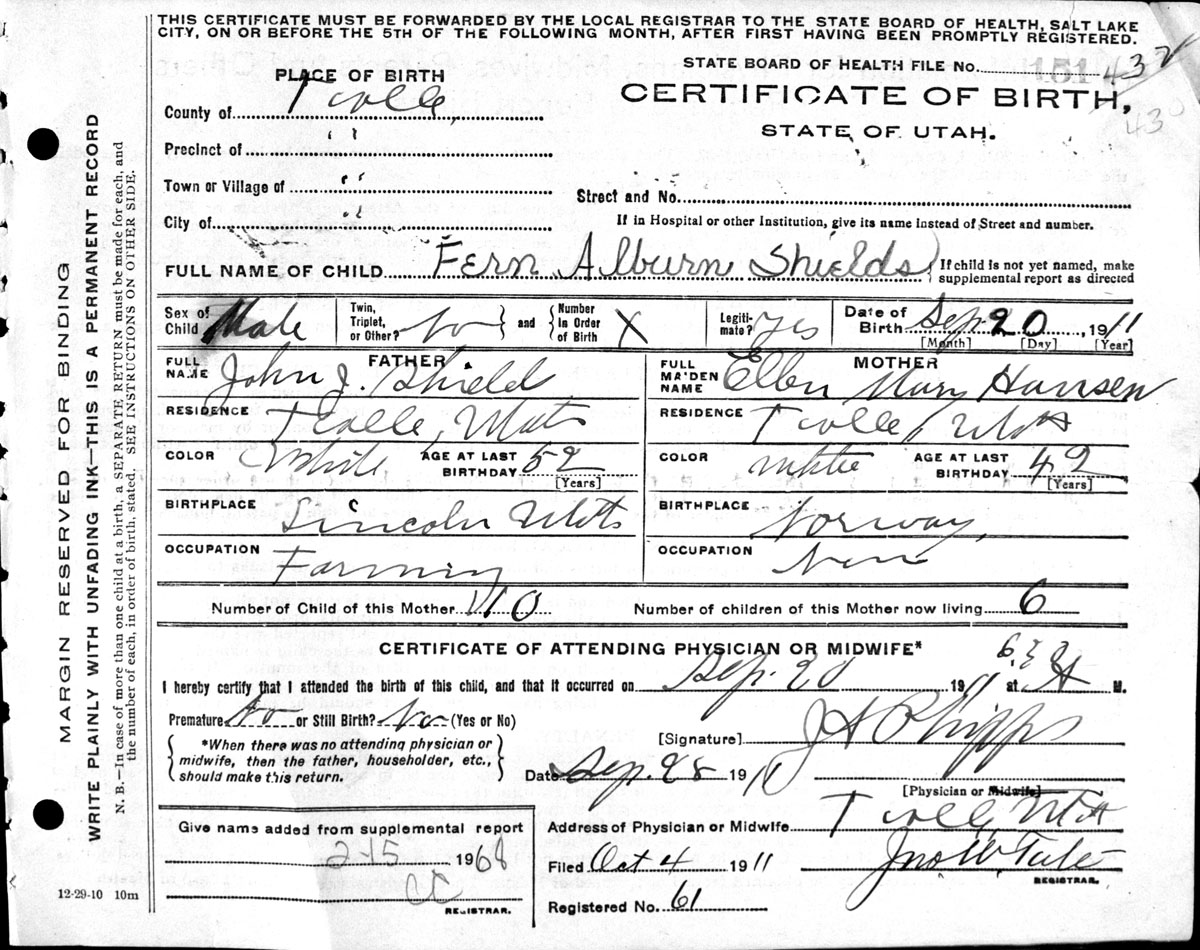 THIS CERTIFICATE MUST BE FORWARDED BY THE LOCAL REGISTRAR TO THE STATE BOARD OF HEALTH, SALT LAKE
CITY, ON OR BEFORE THE 5TH OF THE FOLLOWING MONTH, AFTER FIRST HAVING BEEN PROMPTLY REGISTERED.
STATE BOARD OF HEALTH FILE No. 151 432
430
PLACE OF BIRTH
CERTIFICATE OF BIRTH,
STATE OF UTAH.
County of Tooele,
Precinct of " "
Town or Village of " "
City of " "
Street and No.
If in Hospital or other Institution, give its name instead of Street and number.
FULL NAME OF CHILD Fern Alburn Shields
If child is not yet named, make
supplemental report as directed
Sex of Child Male Twin, Triplet, or Other? No and Number in Order of Birth X Legiti-mate? Yes Date of Birth Sep 20, 1911
[Month] [Day] [Year]
FATHER MOTHER
FULL NAME John J. Shield FULL MAIDEN NAME Ellen Mary Hansen
RESIDENCE Tooele, Utah RESIDENCE Tooele, Utah
COLOR White AGE AT LAST BIRTHDAY 52 COLOR White AGE AT LAST BIRTHDAY 42
[Years] [Years]
BIRTHPLACE Lincoln Utah BIRTHPLACE Norway,
OCCUPATION Farming OCCUPATION
Number of Child of this Mother 10 Number of children of this Mother now living 6
CERTIFICATE OF ATTENDING PHYSICIAN OR MIDWIFE*
I hereby certify that I attended the birth of this child, and that it occurred on Sep. 20 1911 at A M.
Premature No or Still Birth? No (Yes or No)
*When there was no attending physician or
midwife, then the father, householder, etc.,
should make this return.
[Signature] J A Phipps
Date Sep. 28 191
[Physician or Midwife]
Give name added from supplemental report
2-15 1968
REGISTRAR.
Address of Physician or Midwife Tooele, Utah
Filed Oct 4 1911 Jno W Tate
REGISTRAR.
Registered No. 61
12-29-10 10m
MARGIN RESERVED FOR BINDING
WRITE PLAINLY WITH UNFADING INK—THIS IS A PERMANENT RECORD
N. B.—In case of more than one child at a birth, a SEPARATE RETURN must be made for each, and
the number of each, in order of birth, stated. SEE INSTRUCTIONS ON OTHER SIDE.